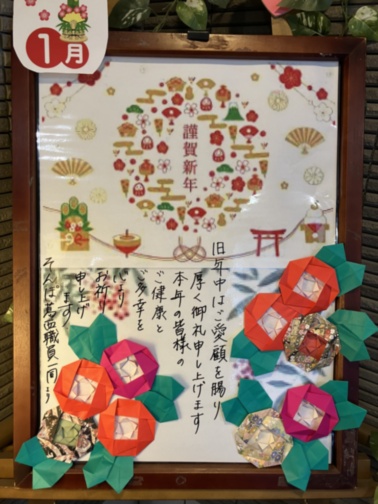 1月
謹賀新年
旧年中はご愛顧を賜り
厚く御礼申し上げます
本年の皆様の
ご健康と
ご多幸を
心より
お祈り
申し上げ
ます
職員一同より